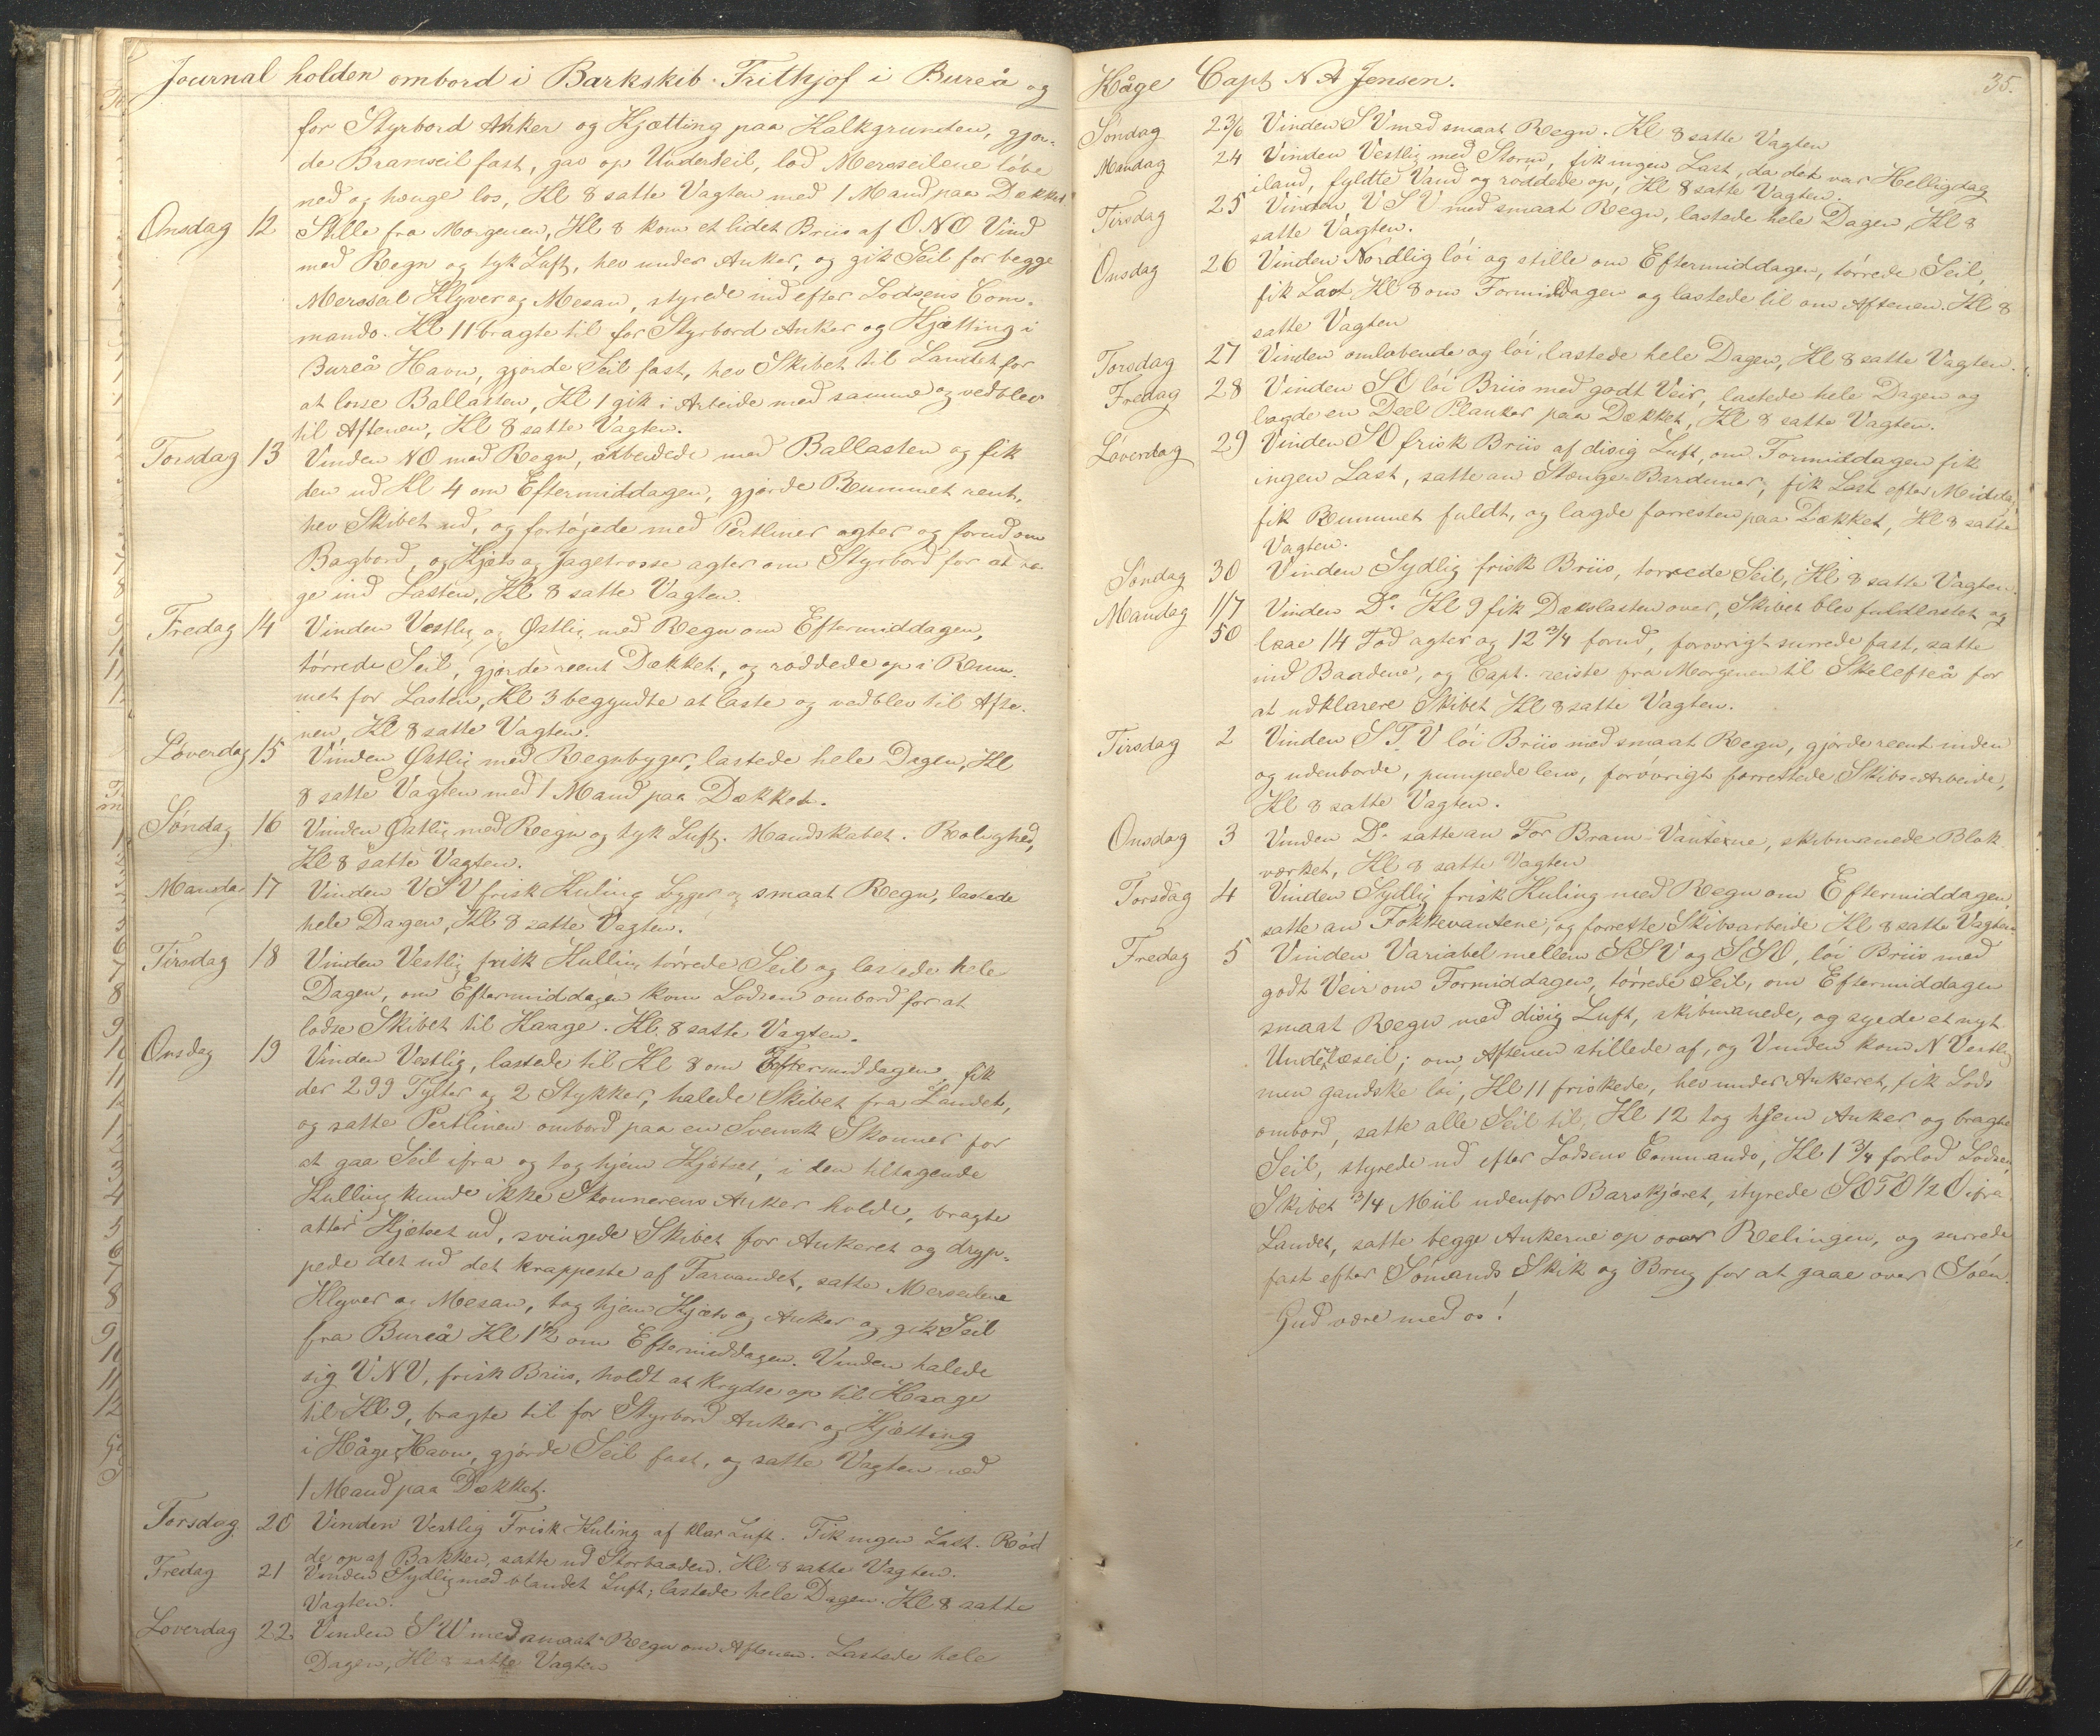 Journal holden ombord i Barkskib Frithjof i Bureå og
for Styrbord Anker og Kjætting paa Kalkgrunden, gjor-
de Bramseil fast, gav op Underseil, lod Mersseilene løbe
ned og hænge los, Kl 8 satte Vagten med 1 Mand paa Dækket.
Onsdag 12 Stille fra Morgenen, Kl 8 kom et lidet Briis af ONO Vind
med Regn og tyk Luft, hev under Anker, og gik Seil for begge
Mersseil Klyver og Mesan, styrede ind efter Lodsens Com-
mando. Kl 11 bragte til for Styrbord Anker og Kjætting i
Bureå Havn, gjorde Seil fast, hev Skibet til Landet for
at losse Ballasten, Kl 1 gik i Arbeide med samme og vedblev
til Aftenen, Kl 8 satte Vagten.
Torsdag 13 Vinden NO med Regn, arbeidede med Ballasten og fik
den ud Kl 4 om Eftermiddagen, gjorde Rummet rent,
hev Skibet ud, og fortøjede med Pertliner agter og forud om
Bagbord, og Kjæts og Jagetrosse agter om Styrbord for at ta-
ge ind Lasten, Kl 8 satte Vagten.
Fredag 14 Vinden Vestlig og Østlig med Regn om Eftermiddagen,
tørrede Seil, gjorde reent Dækket, og røddede op i Rum-
met for Lasten, Kl 3 begyndte at laste og vedblev til Afte-
nen, Kl 8 satte Vagten.
Løverdag 15 Vinden Østlig med Regnbyger, lastede hele Dagen, Kl
8 satte Vagten med 1 Mand paa Dækket.
Søndag 16 Vinden Østlig med Regn og tyk Luft. Mandskabet. Rolighed,
Kl 8 satte Vagten.
Mandag 17 Vinden VSV frisk Kuling Bygger og smaat Regn, lastede
hele Dagen, Kl 8 satte Vagten.
Tirsdag 18 Vinden Vestlig frisk Kulling tørrede Seil og lastede hele
Dagen, om Eftermiddagen kom Lodsen ombord for at
lodse Skibet til Kaage. Kl 8 satte Vagten.
Onsdag 19 Vinden Vestlig, lastede til Kl 8 om Eftermiddagen, fik
der 299 Tylter og 2 Stykker, halede Skibet fra Landet,
og satte Pertlinen ombord paa en Svensk Skonner for
at gaa Seil ifra og tog hjem Kjætset, i den tiltagende
Kulling kunde ikke Skonnerens Anker holde, bragte
atter Kjætset ud, svingede Skibet for Ankeret og dryp-
pede det ud det krappeste af Farvandet, satte Merseilene
Klyver og Mesan, tog hjem Kjæts og Anker og gik Seil
fra Bureå Kl 1½ om Eftermiddagen. Vinden halede
sig VNV, frisk Briis, holdt at krydse op til Kaage
til Kl 9, bragte til for Styrbord Anker og Kjætting
i Kåge Havn, gjorde Seil fast, og satte Vagten med
1 Mand paa Dækket.
Torsdag 20 Vinden Vestlig Frisk Kuling af klar Luft. Fik ingen Last. Rød
de op af Bakken, satte ud Storbaaden. Kl 8 satte Vagten.
Fredag 21 Vinden Sydlig med blandet Luft; lastede hele Dagen. Kl 8 satte
Vagten.
Løverdag 22 Vinden SW med smaat Regn om Aftenen. Lastede hele
Dagen, Kl 8 satte Vagten
Kåge Capt N A Jensen. 35.
Søndag 23/6 Vinden SV med smaat Regn. Kl 8 satte Vagten
Mandag 24 Vinden Vestlig med Storm, fik ingen Last, da det var Helligdag
iland, fyldte Vand og røddede op, Kl 8 satte Vagten.
Tirsdag 25 Vinden VSV med smaat Regn, lastede hele Dagen, Kl 8
satte Vagten.
Onsdag 26 Vinden Nordlig løi og stille om Eftermiddagen, tørrede Seil,
fik Last Kl 8 om Formiddagen og lastede til om Aftenen. Kl 8
satte Vagten
Torsdag 27 Vinden omløbende og løi, lastede hele Dagen, Kl 8 satte Vagten.
Fredag 28 Vinden SO løi Briis med godt Veir, lastede hele Dagen og
lagde en Deel Planker paa Dækket, Kl 8 satte Vagten.
Løverdag 29 Vinden SO frisk Briis af disig Luft, om Formiddagen fik
ingen Last, satte an Stænge-Barduner, fik Last efter Middag,
fik Rummet fuldt, og lagde forresten paa Dækket, Kl 8 satte
Vagten.
Søndag 30 Vinden Sydlig frisk Briis, tørrede Seil, Kl 8 satte Vagten.
Mandag 1/7 Vinden Do Kl 9 fik Dækslasten over, Skibet blev fuldlastet og
50 laae 14 Fod agter og 12 3/4 forud, forøvrigt surrede fast, satte
ind Baadene, og Capt. reiste fra Morgenen til Skelefteå for
at udklarere Skibet, Kl 8 satte Vagten.
Tirsdag 2 Vinden STV løi Briis med smaat Regn, gjorde reent inden
og udenborde, pumpede lens, forøvrigt forrettede Skibs-Arbeide,
Kl 8 satte Vagten.
Onsdag 3 Vinden Do satte an For Bram-Vanterne, skibmanede Blok
værket, Kl 8 satte Vagten
Torsdag 4 Vinden Sydlig frisk Kuling med Regn om Eftermiddagen,
satte an Fokkevantene, og forrette Skibsarbeide Kl 8 satte Vagten
Fredag 5 Vinden Variabel mellem SSV og SSO, løi Briis med
godt Veir om Formiddagen, tørrede Seil, om Eftermiddagen
smaat Regn med disig Luft, skibmanede, og syede et nyt
Underlæseil; om Aftenen stillede af, og Vinden kom N Vestlig
men gandske løi, Kl 11 friskede, hev under Ankeret, fik Lods
ombord, satte alle Seil til, Kl 12 tog hjem Anker og bragte
Seil, styrede ud efter Lodsens Commando, Kl 1 3/4 forlod Lodsen
Skibet 3/4 Miil udenfor Barskjæret, styrede SOTO ½ O ifra
Landet, satte begge Ankerne op over Relingen, og surrede
fast efter Sømands Skik og Brug for at gaae over Søen.
Gud være med os!